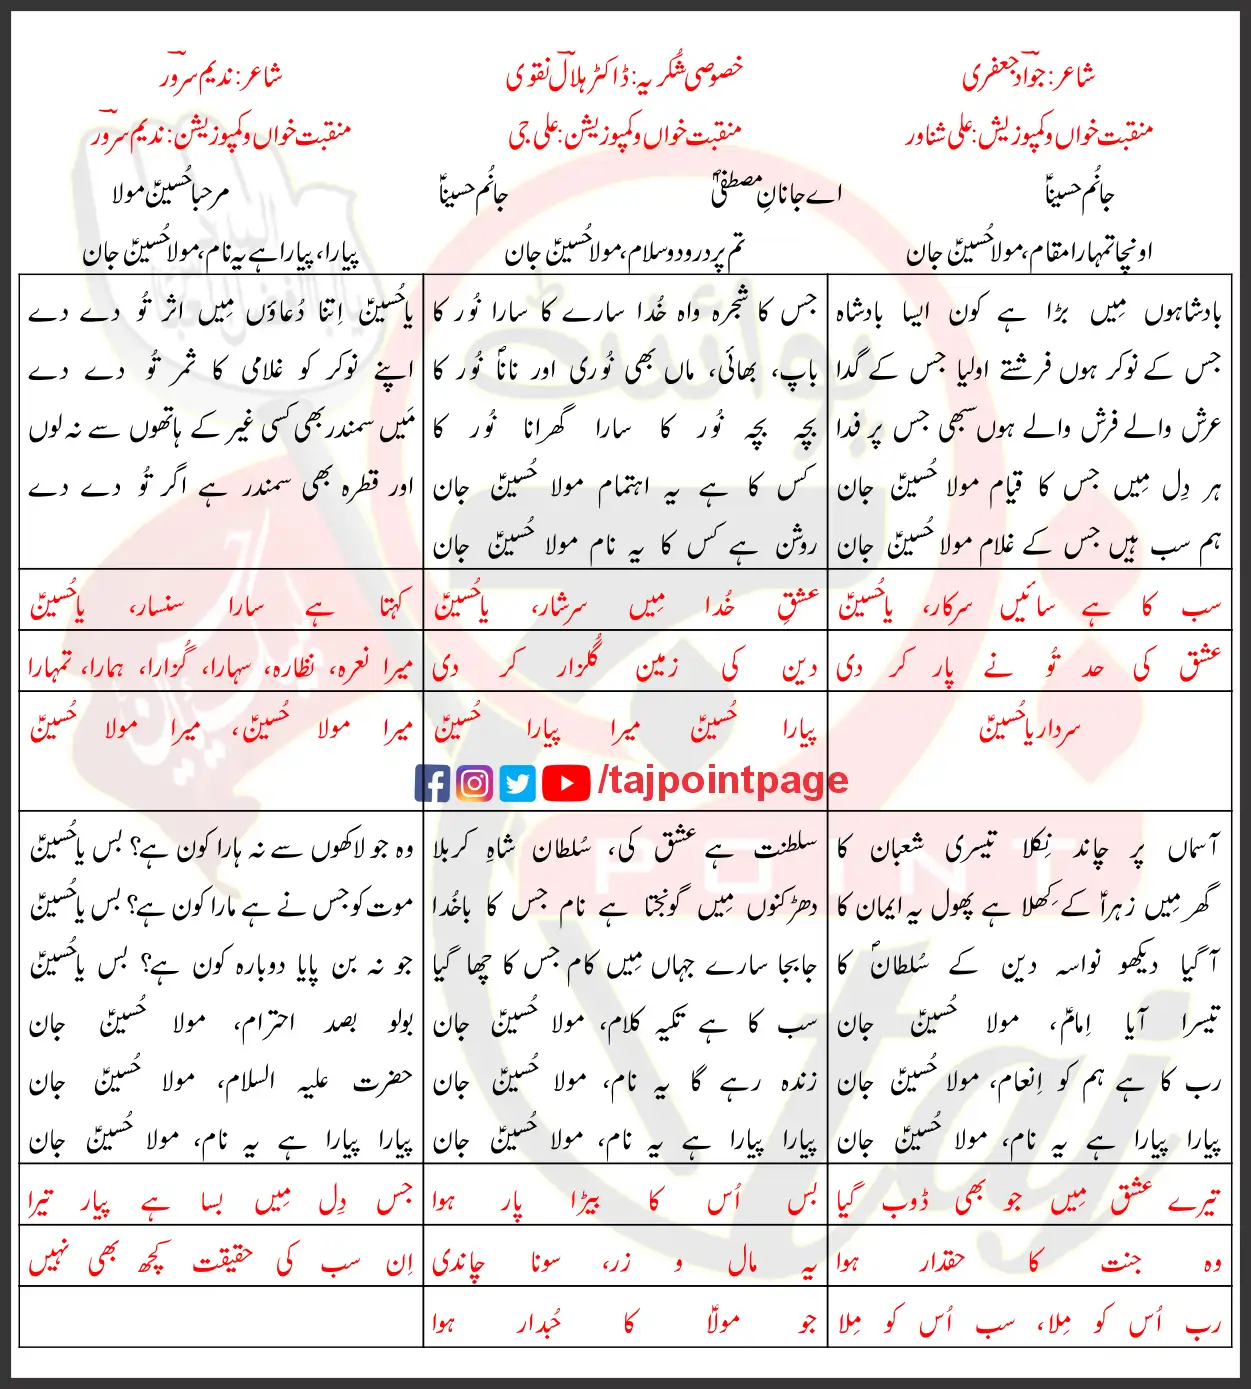 شاعر: جواد جعفری
خصوصی شُکریہ: ڈاکٹر ہلال نقوی
شاعر: ندیم سرور
منقبت خواں و کمپوزیشن: علی شناور
منقبت خواں و کمپوزیشن: علی جی
منقبت خواں و کمپوزیشن: ندیم سرور
جانُم حسیناؑ
اے جانانِ مصطفیٰؐ
جانُم حسیناؑ
مرحبا حُسینؑ مولا
اونچا تمہارا مقام، مولا حُسینؑ جان
تم پر درود و سلام، مولا حُسینؑ جان
پیارا، پیارا ہے یہ نام، مولا حُسینؑ جان
بادشاہوں مِیں بڑا ہے کون ایسا بادشاہ
جس کے نوکر ہوں فرشتے اولیا جس کے گدا
عرش والے فرش والے ہوں سبھی جس پر فدا
ہر دِل مِیں جس کا قیام مولا حُسینؑ جان
ہم سب ہیں جس کے غلام مولا حُسینؑ جان
جس کا شجرہ واہ خُدا سارے کا سارا نُور کا
باپ، بھائی، ماں بھی نُوری اور ناناؐ نُور کا
بچہ بچہ نُور کا سارا گھرانا نُور کا
کس کا ہے یہ اہتمام مولا حُسینؑ جان
روشن ہے کس کا یہ نام مولا حُسینؑ جان
یا حُسینؑ اِتنا دُعاؤں مِیں اثر تُو دے دے
اپنے نوکر کو غلامی کا ثمر تُو دے دے
مَیں سمندر بھی کسی غیر کے ہاتھوں سے نہ لوں
اور قطرہ بھی سمندر ہے اگر تُو دے دے
سب کا ہے سائیں سرکار، یا حُسینؑ
عشقِ خُدا مِیں سرشار، یا حُسینؑ
کہتا ہے سارا سنسار، یا حُسینؑ
عشق کی حد تُو نے پار کر دی
دین کی زمین گُلزار کر دی
میرا نعرہ، نظارہ، سہارا، گُزارا، ہمارا، تمہارا
سردار یا حُسینؑ
پیارا حُسینؑ میرا پیارا حُسینؑ
میرا مولا حُسینؑ، میرا مولا حُسینؑ
/tajpointpage
آسماں پر چاند نِکلا تیسری شعبان کا
گھر مِیں زہراؑ کے کِھلا ہے پھول یہ ایمان کا
آ گیا دیکھو نواسہ دین کے سُلطانؐ کا
تیسرا آیا اِمامؑ، مولا حُسینؑ جان
رب کا ہے ہم کو اِنعام، مولا حُسینؑ جان
پیارا پیارا ہے یہ نام، مولا حُسینؑ جان
سلطنت ہے عشق کی، سُلطان شاہِ کربلا
دھڑکنوں مِیں گونجتا ہے نام جس کا باخُدا
جابجا سارے جہاں مِیں کام جس کا چھا گیا
سب کا ہے تکیہ کلام، مولا حُسینؑ جان
زندہ رہے گا یہ نام، مولا حُسینؑ جان
پیارا پیارا ہے یہ نام، مولا حُسینؑ جان
وہ جو لاکھوں سے نہ ہارا کون ہے؟ بس یا حُسینؑ
موت کو جس نے ہے مارا کون ہے؟ بس یا حُسینؑ
جو نہ بن پایا دوبارہ کون ہے؟ بس یا حُسینؑ
بولو بصد احترام، مولا حُسینؑ جان
حضرت علیہ السلام، مولا حُسینؑ جان
پیارا پیارا ہے یہ نام، مولا حُسینؑ جان
تیرے عشق مِیں جو بھی ڈوب گیا
بس اُس کا بیڑا پار ہوا
جس دِل مِیں بسا ہے پیار تیرا
وہ جنت کا حقدار ہوا
یہ مال و زر، سونا چاندی
اِن سب کی حقیقت کچھ بھی نہیں
رب اُس کو مِلا، سب اُس کو مِلا
جو مولاؑ کا حُبدار ہوا